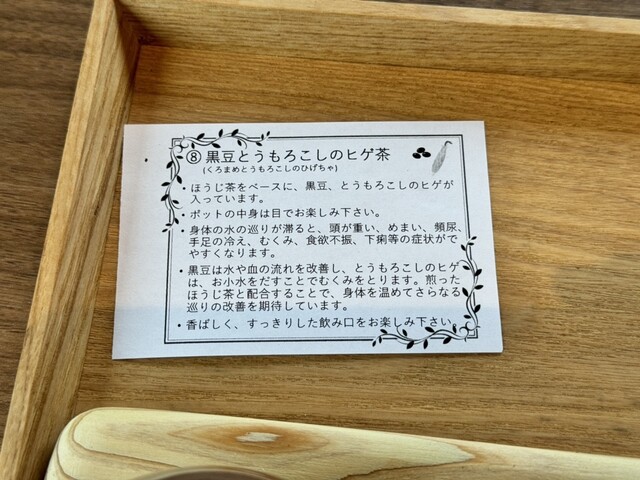 ⑧ 黒豆とうもろこしのヒゲ茶
(くろまめとうもろこしのひげちゃ)
・ほうじ茶をベースに、黒豆、とうもろこしのヒゲが
入っています。
・ポットの中身は目でお楽しみ下さい。
・身体の水の巡りが滞ると、頭が重い、めまい、頻尿、
手足の冷え、むくみ、食欲不振、下痢等の症状がで
やすくなります。
・黒豆は水や血の流れを改善し、とうもろこしのヒゲ
は、お小水をだすことでむくみをとります。煎った
ほうじ茶と配合することで、身体を温めてさらなる
巡りの改善を期待しています。
・香ばしく、すっきりした飲み口をお楽しみ下さい。